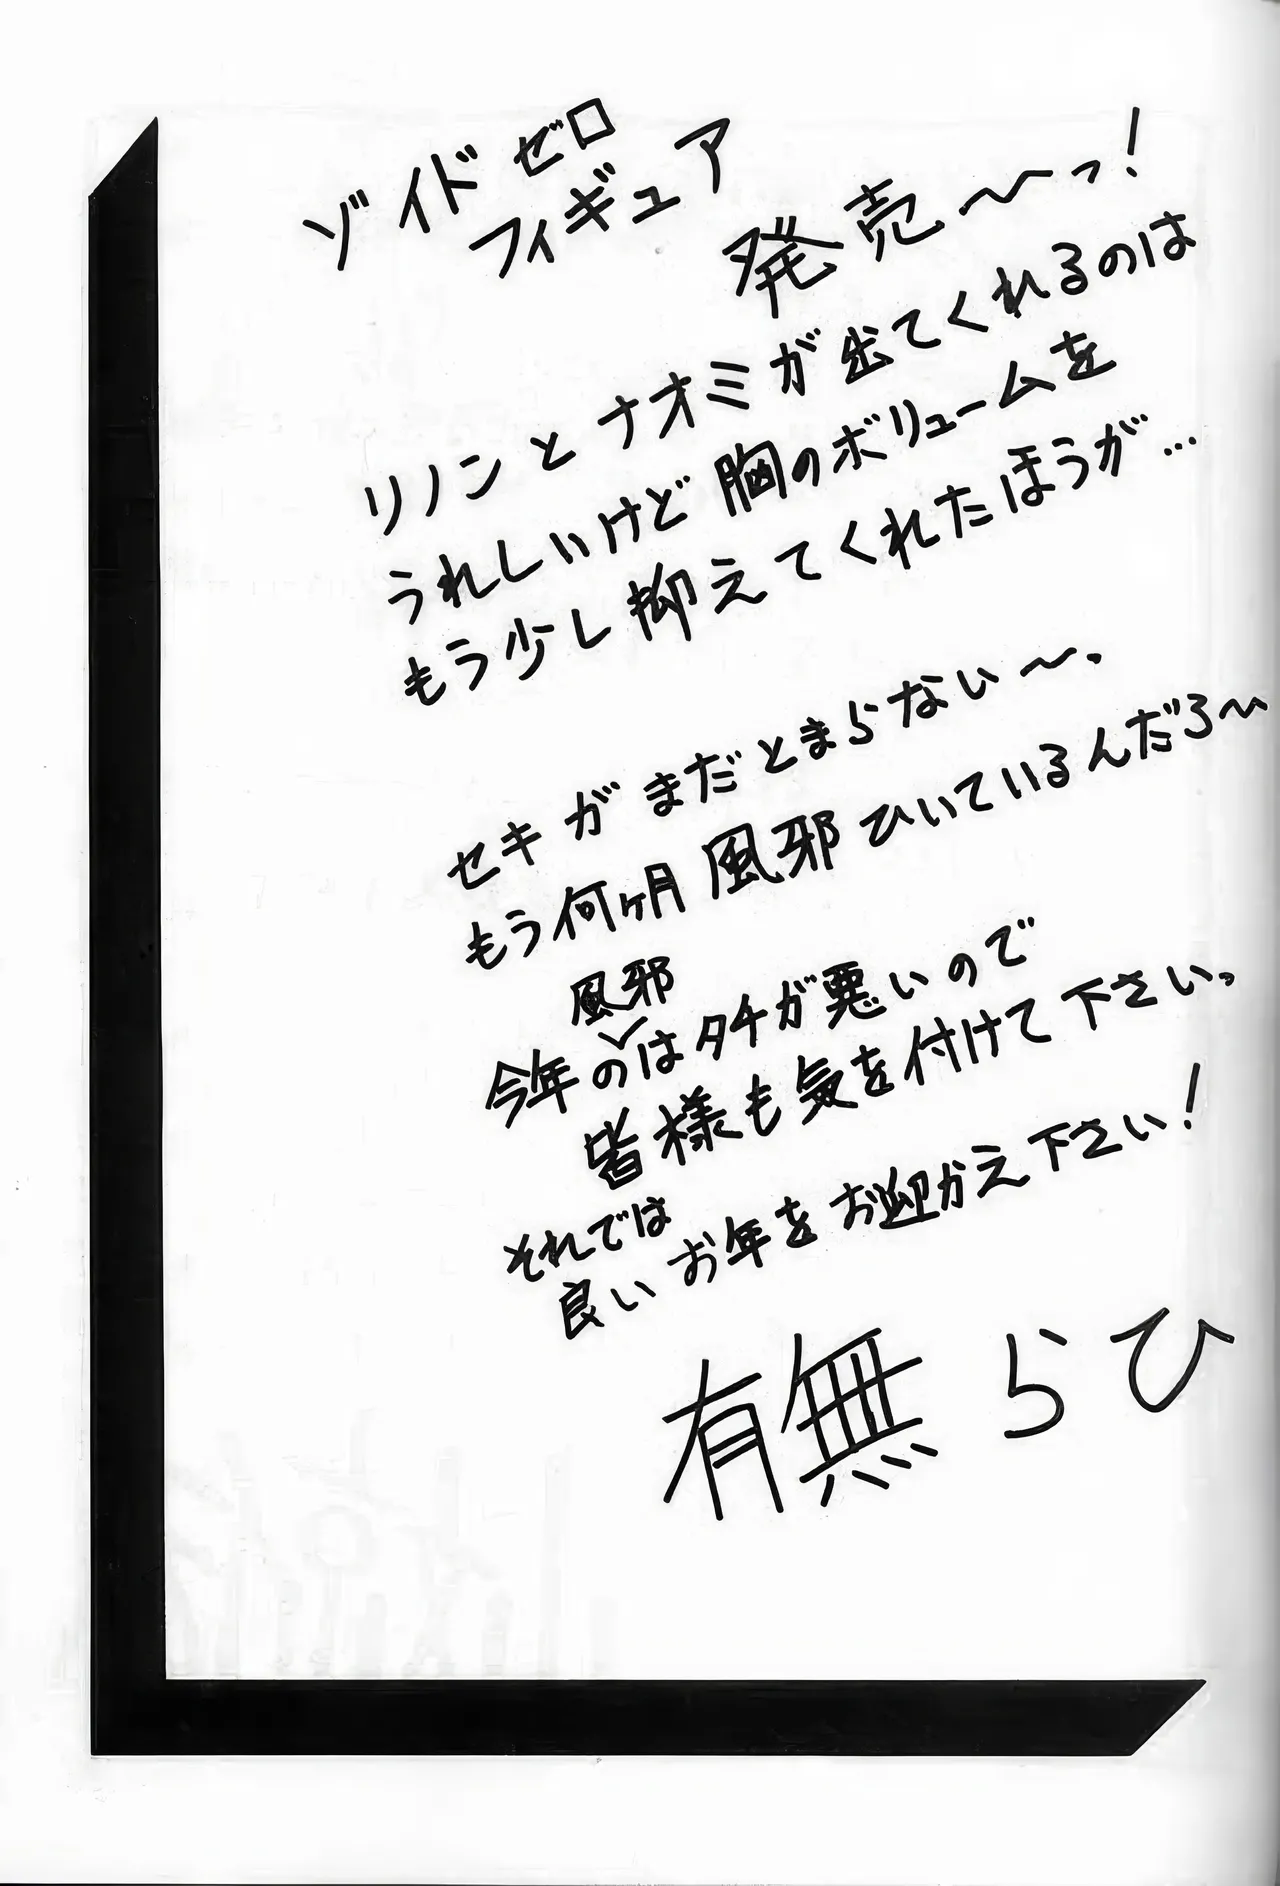 ゾイドゼロ
フィギュア
発売〜っ!
リノンとナオミが出てくれるのは
うれしいけど胸のボリュームを
もう少し抑えてくれたほうが…
セキがまだとまらない〜。
もう何ヶ月風邪ひいているんだろ〜
風邪
今年のはタチが悪いので
皆様も気を付けて下さい。
それでは
良いお年をお迎かえ下さい!
有無らひ